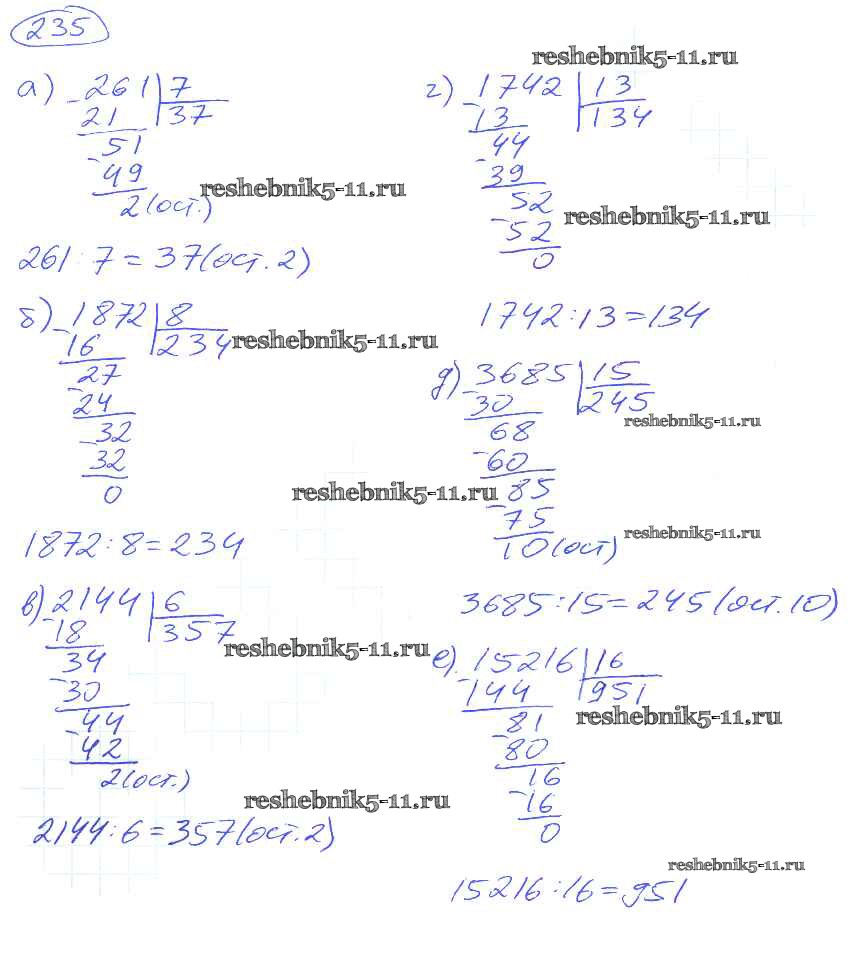 235
reshebnik5-11.ru
а) 261 7
21 37
51
49
2(ост.)
reshebnik5-11.ru
261:7=37(ост.2)
б) 1872 8
16 234
reshebnik5-11.ru
27
24
32
32
0
reshebnik5-11.ru
1872:8=234
в) 2144 6
18 357
reshebnik5-11.ru
34
30
44
42
2(ост.)
reshebnik5-11.ru
2144:6=357(ост.2)
г) 1742 13
13 134
44
39
52
reshebnik5-11.ru
52
0
1742:13=134
д) 3685 15
30 245
reshebnik5-11.ru
68
60
85
75
reshebnik5-11.ru
10(ост)
3685:15=245(ост.10)
е) 15216 16
144 951
reshebnik5-11.ru
81
80
16
16
0
reshebnik5-11.ru
15216:16=951